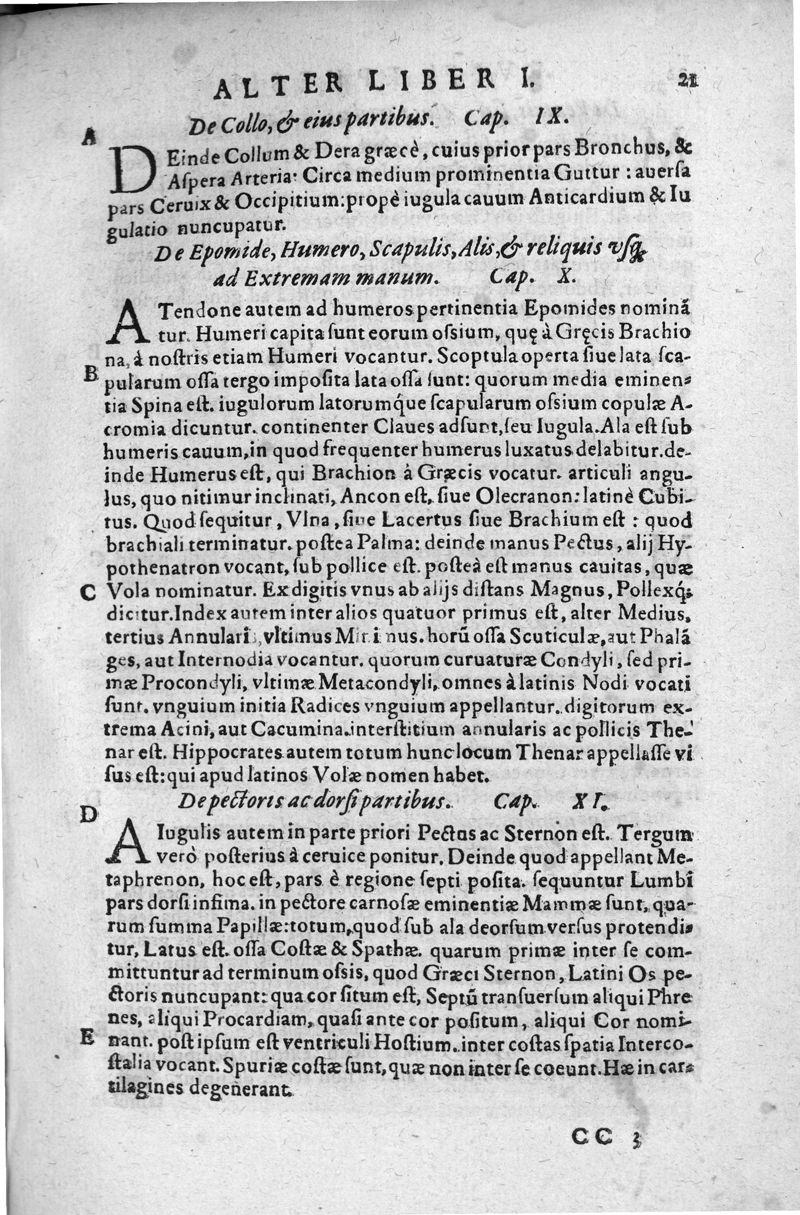 ALTER LIBER I. 21
De Collo, & eius partibus. Cap. IX.
A
DEinde Collum & Dera græcè, cuius prior pars Bronchus, &
Aſpera Arteria: Circa medium prominentia Guttur : auerſa
pars Ceruix & Occipitium: propè iugula cauum Anticardium & Iu
gulatio nuncupatur.
De Epomide, Humero, Scapulis, Alis, & reliquis vſq;
ad Extremam manum. Cap. X.
ATendone autem ad humeros pertinentia Epomides nominā
tur. Humeri capita ſunt eorum oſsium, quę à Gręcis Brachio
na, à noſtris etiam Humeri vocantur. Scoptula operta ſiue lata ſca-
B
pularum oſſa tergo impoſita lata oſſa ſunt: quorum media eminen-
tia Spina eſt. iugulorum latorumq́ue ſcapularum oſsium copulæ A-
cromia dicuntur. continenter Claues adſunt, ſeu Iugula. Ala eſt ſub
humeris cauum, in quod frequenter humerus luxatus delabitur. de-
inde Humerus eſt, qui Brachion à Græcis vocatur. articuli angu-
lus, quo nitimur inclinati, Ancon eſt, ſiue Olecranon: latinè Cubi-
tus. Quod ſequitur, Vlna, ſiue Lacertus ſiue Brachium eſt : quod
brachiali terminatur. poſtea Palma: deinde manus Pectus, alij Hy-
pothenatron vocant, ſub pollice eſt. poſteà eſt manus cauitas, quæ
C Vola nominatur. Ex digitis vnus ab alijs diſtans Magnus, Pollexq́;
dicitur. Index autem inter alios quatuor primus eſt, alter Medius,
tertius Annularis, vltimus Minimus. horū oſſa Scuticulæ, aut Phalā
ges, aut Internodia vocantur. quorum curuaturæ Condyli, ſed pri-
mæ Procondyli, vltimæ Metacondyli, omnes à latinis Nodi vocati
ſunt. vnguium initia Radices vnguium appellantur. digitorum ex-
trema Acini, aut Cacumina. interſtitium annularis ac pollicis The-
nar eſt. Hippocrates autem totum hunc locum Thenar appellaſſe vi
ſus eſt: qui apud latinos Volæ nomen habet.
De pectoris ac dorſi partibus. Cap. XI.
D
AIugulis autem in parte priori Pectus ac Sternon eſt. Tergum
verò poſterius à ceruice ponitur. Deinde quod appellant Me-
taphrenon, hoc eſt, pars è regione ſepti poſita. ſequuntur Lumbi
pars dorſi infima. in pectore carnoſæ eminentiæ Mammæ ſunt, qua-
rum ſumma Papillæ: totum, quod ſub ala deorſum verſus protendi-
tur, Latus eſt. oſſa Coſtæ & Spathæ. quarum primæ inter ſe com-
mittuntur ad terminum oſsis, quod Græci Sternon, Latini Os pe-
ctoris nuncupant: qua cor ſitum eſt, Septū tranſuerſum aliqui Phre
nes, aliqui Procardiam, quaſi ante cor poſitum, aliqui Cor nomi-
E nant. poſt ipſum eſt ventriculi Hoſtium. inter coſtas ſpatia Interco-
ſtalia vocant. Spuriæ coſtæ ſunt, quæ non inter ſe coeunt. Hæ in car-
tilagines degenerant.
CC 3